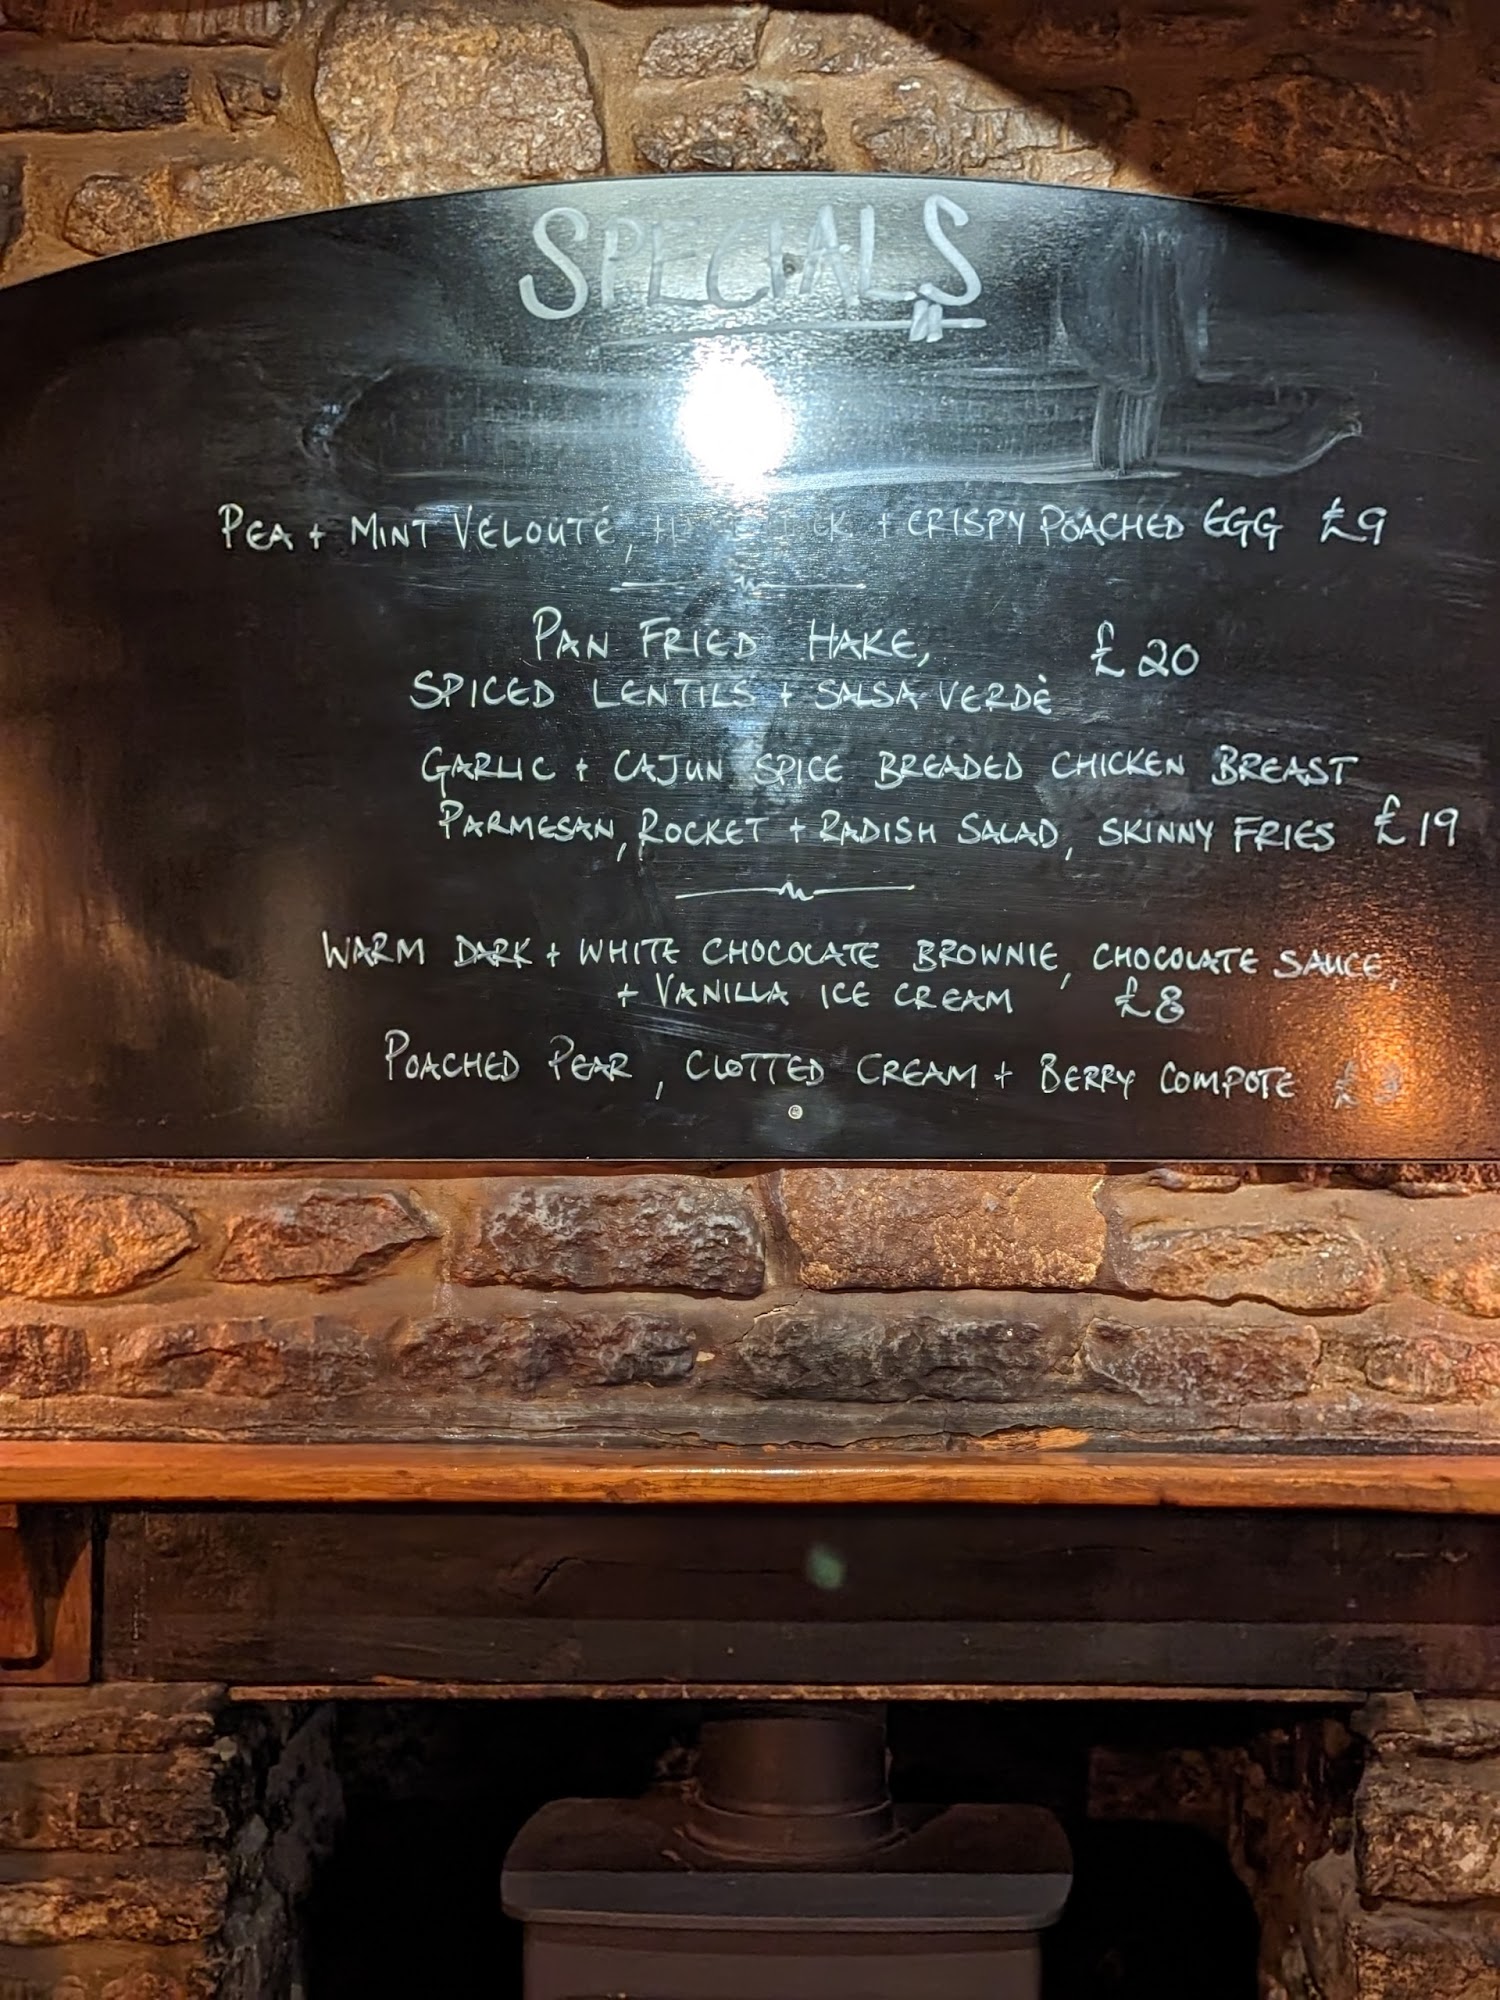 SPECIALS
PEA + MINT VELOUTÉ, + CRISPY POACHED EGG £9
PAN FRIED HAKE, £20
SPICED LENTILS + SALSA VERDÈ
GARLIC + CAJUN SPICE BREADED CHICKEN BREAST
PARMESAN, ROCKET + RADISH SALAD, SKINNY FRIES £19
WARM DARK + WHITE CHOCOLATE BROWNIE, CHOCOLATE SAUCE,
+ VANILLA ICE CREAM £8
POACHED PEAR, CLOTTED CREAM + BERRY COMPOTE